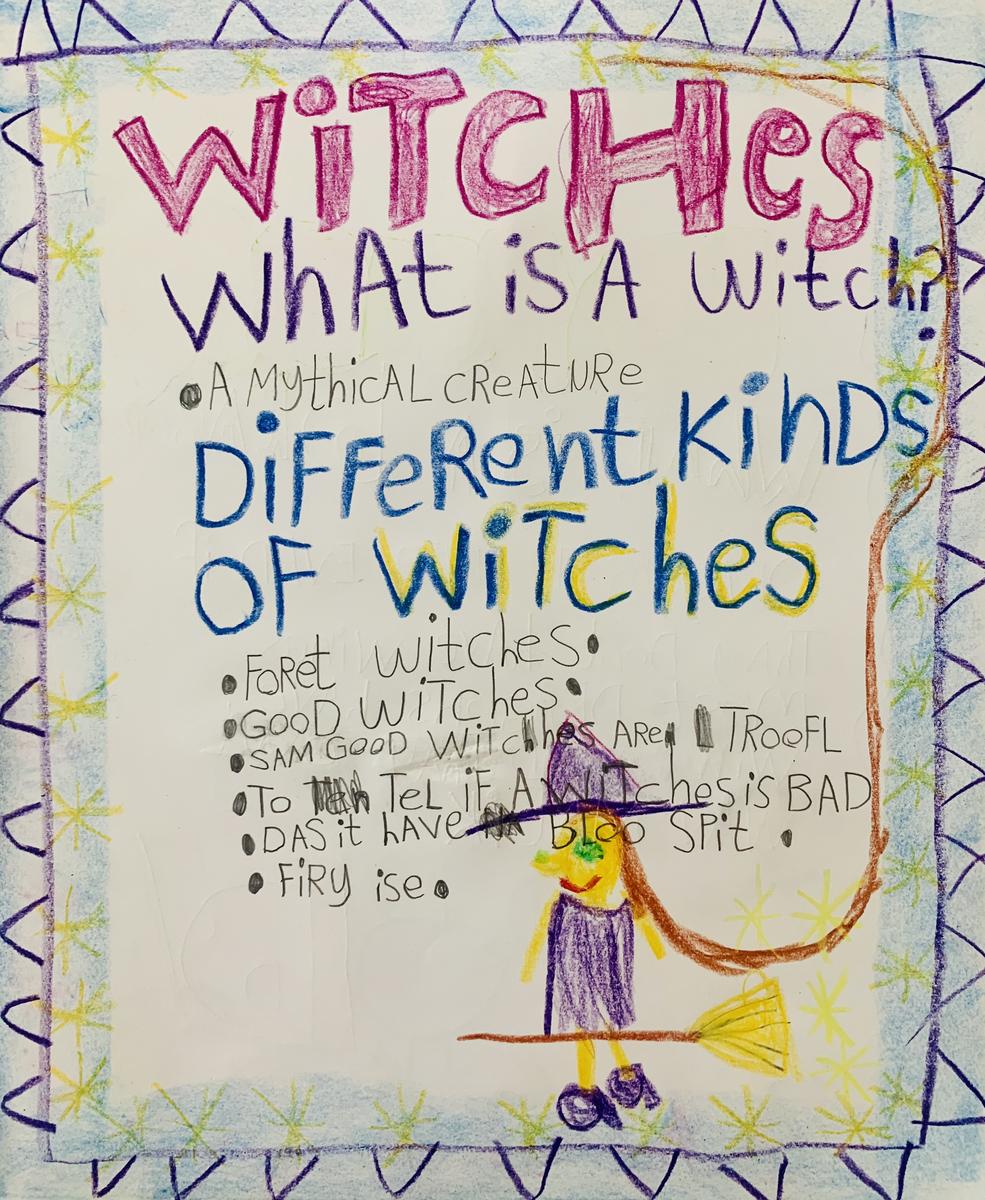 WiTCHes
WhAt iS A witch?
•A MythicAL cReAtURe
DiFFeRent KinDS
OF WiTcheS
•FoRet witcheS•
•GOOD WiTcheS•
•SAM GOOD WiTchhes ARe TROOFL
•To TeL iF A WiTchesis BAD
•DAS it hAve Bloo SPit •
•FiRy ise•